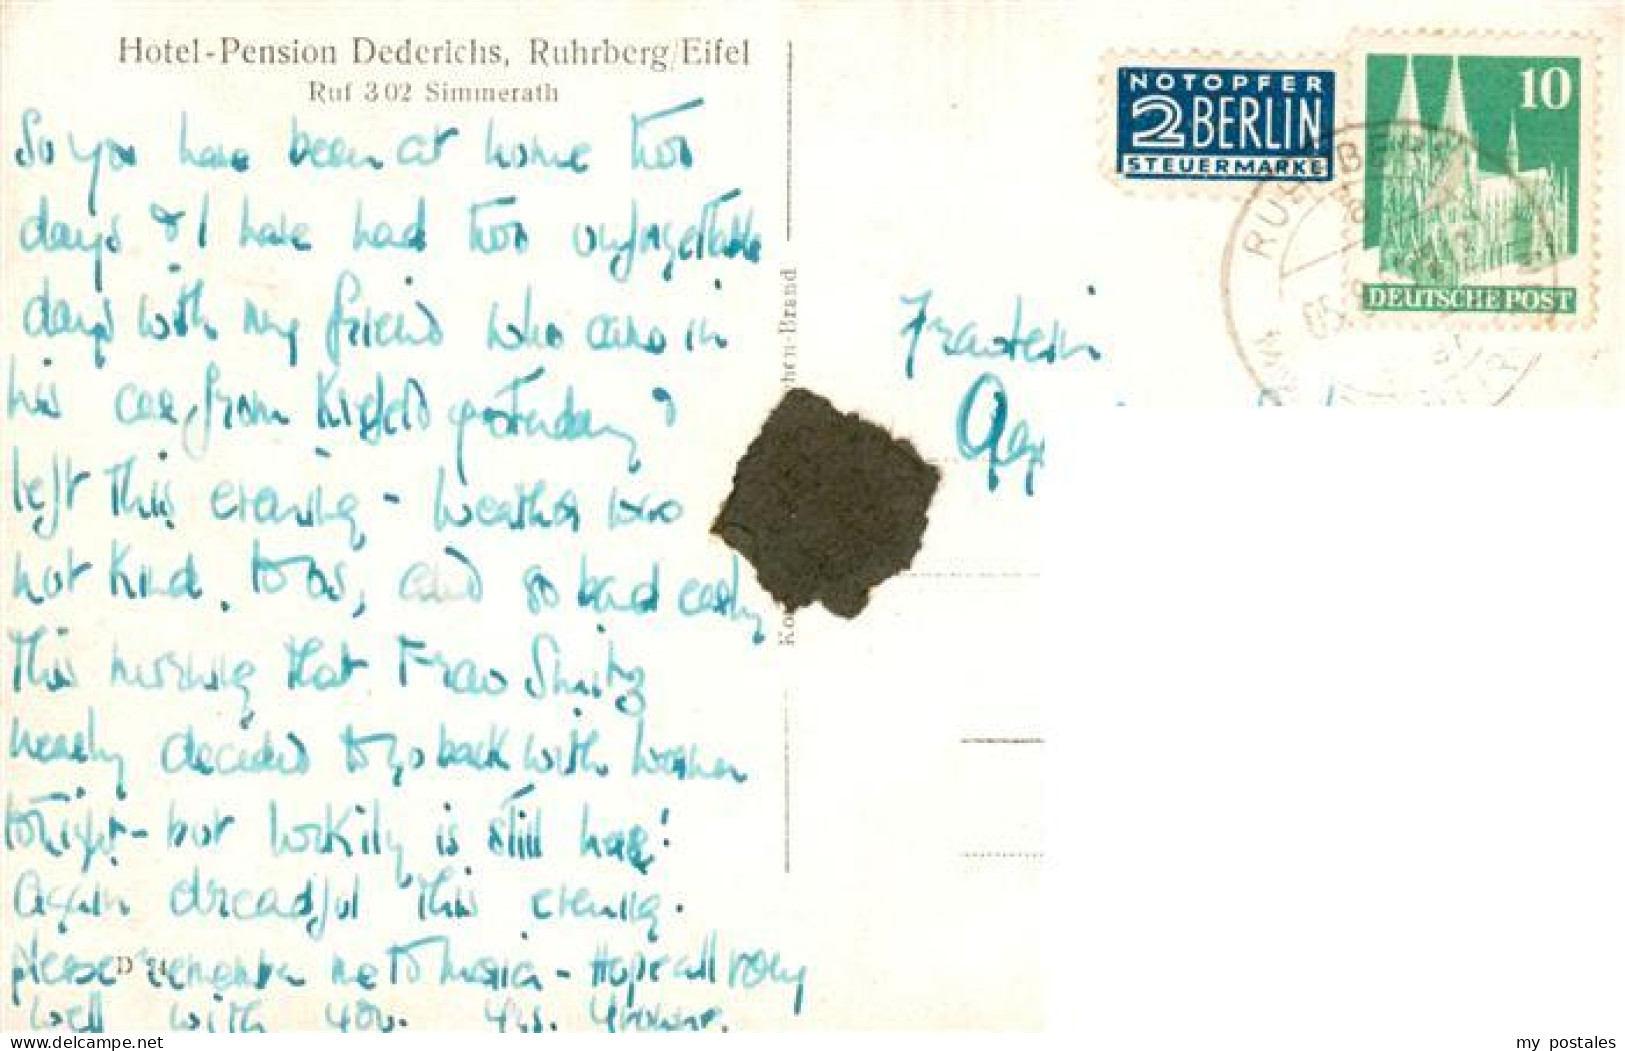 Hotel-Pension Dederichs, Ruhrberg/Eifel
Ruf 302 Simmerath
So you have been at home two
days & I have had two unforgettable
days with my friend who came in
his car, from Krefeld yesterday &
left this evening - weather was
not kind to us, and so bad early
this morning that Frau Smitz
nearly decided to go back with
tonight - but luckily is still here!
Again dreadful this evening.
please remember me to Maria - Hope all very
well with you. Yrs.
D 24
NOTOPFER
2 BERLIN
STEUERMARKE
10
DEUTSCHE POST
RUHRBERG
Fräulein